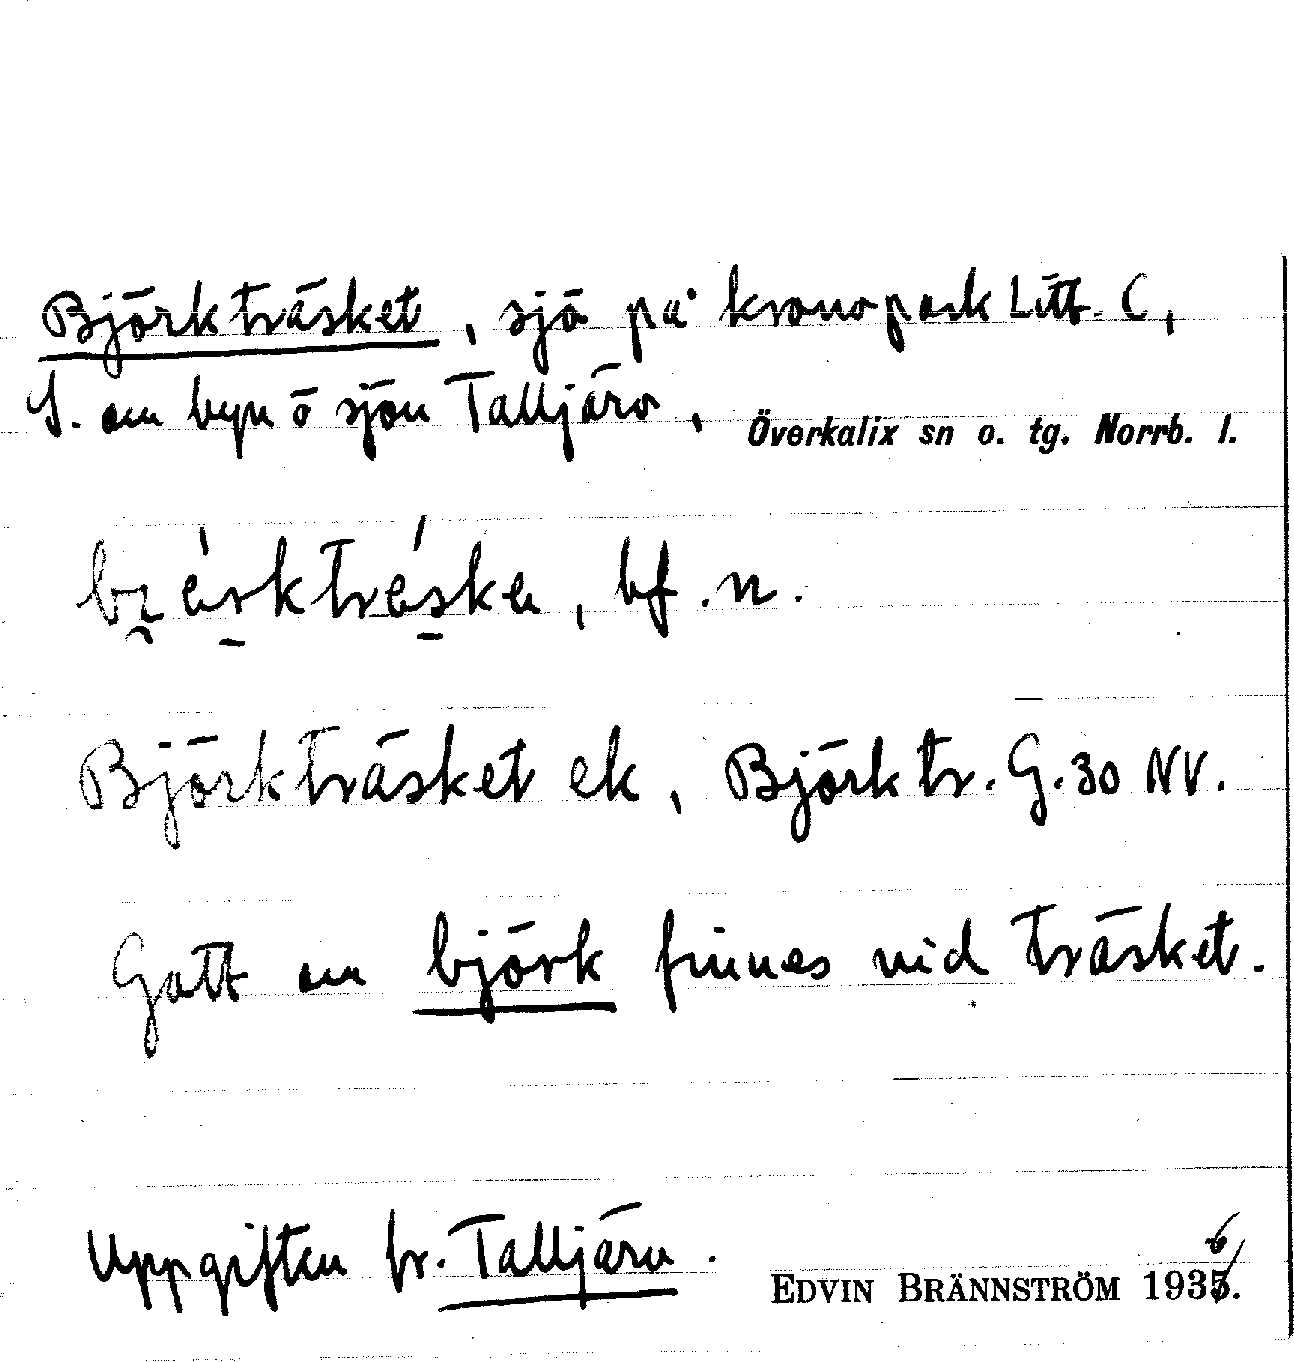 Björkträsket, sjö på kronopark Litt. C,
S. om byn o sjön Talljärv, Överkalix sn o. tg. Norrb. l.
bf.n.
Björkträsket ek, Björktr. G.30 NV.
Gott om björk finnes vid träsket.
Uppgiften fr. Talljärv. EDVIN BRÄNNSTRÖM 1936.